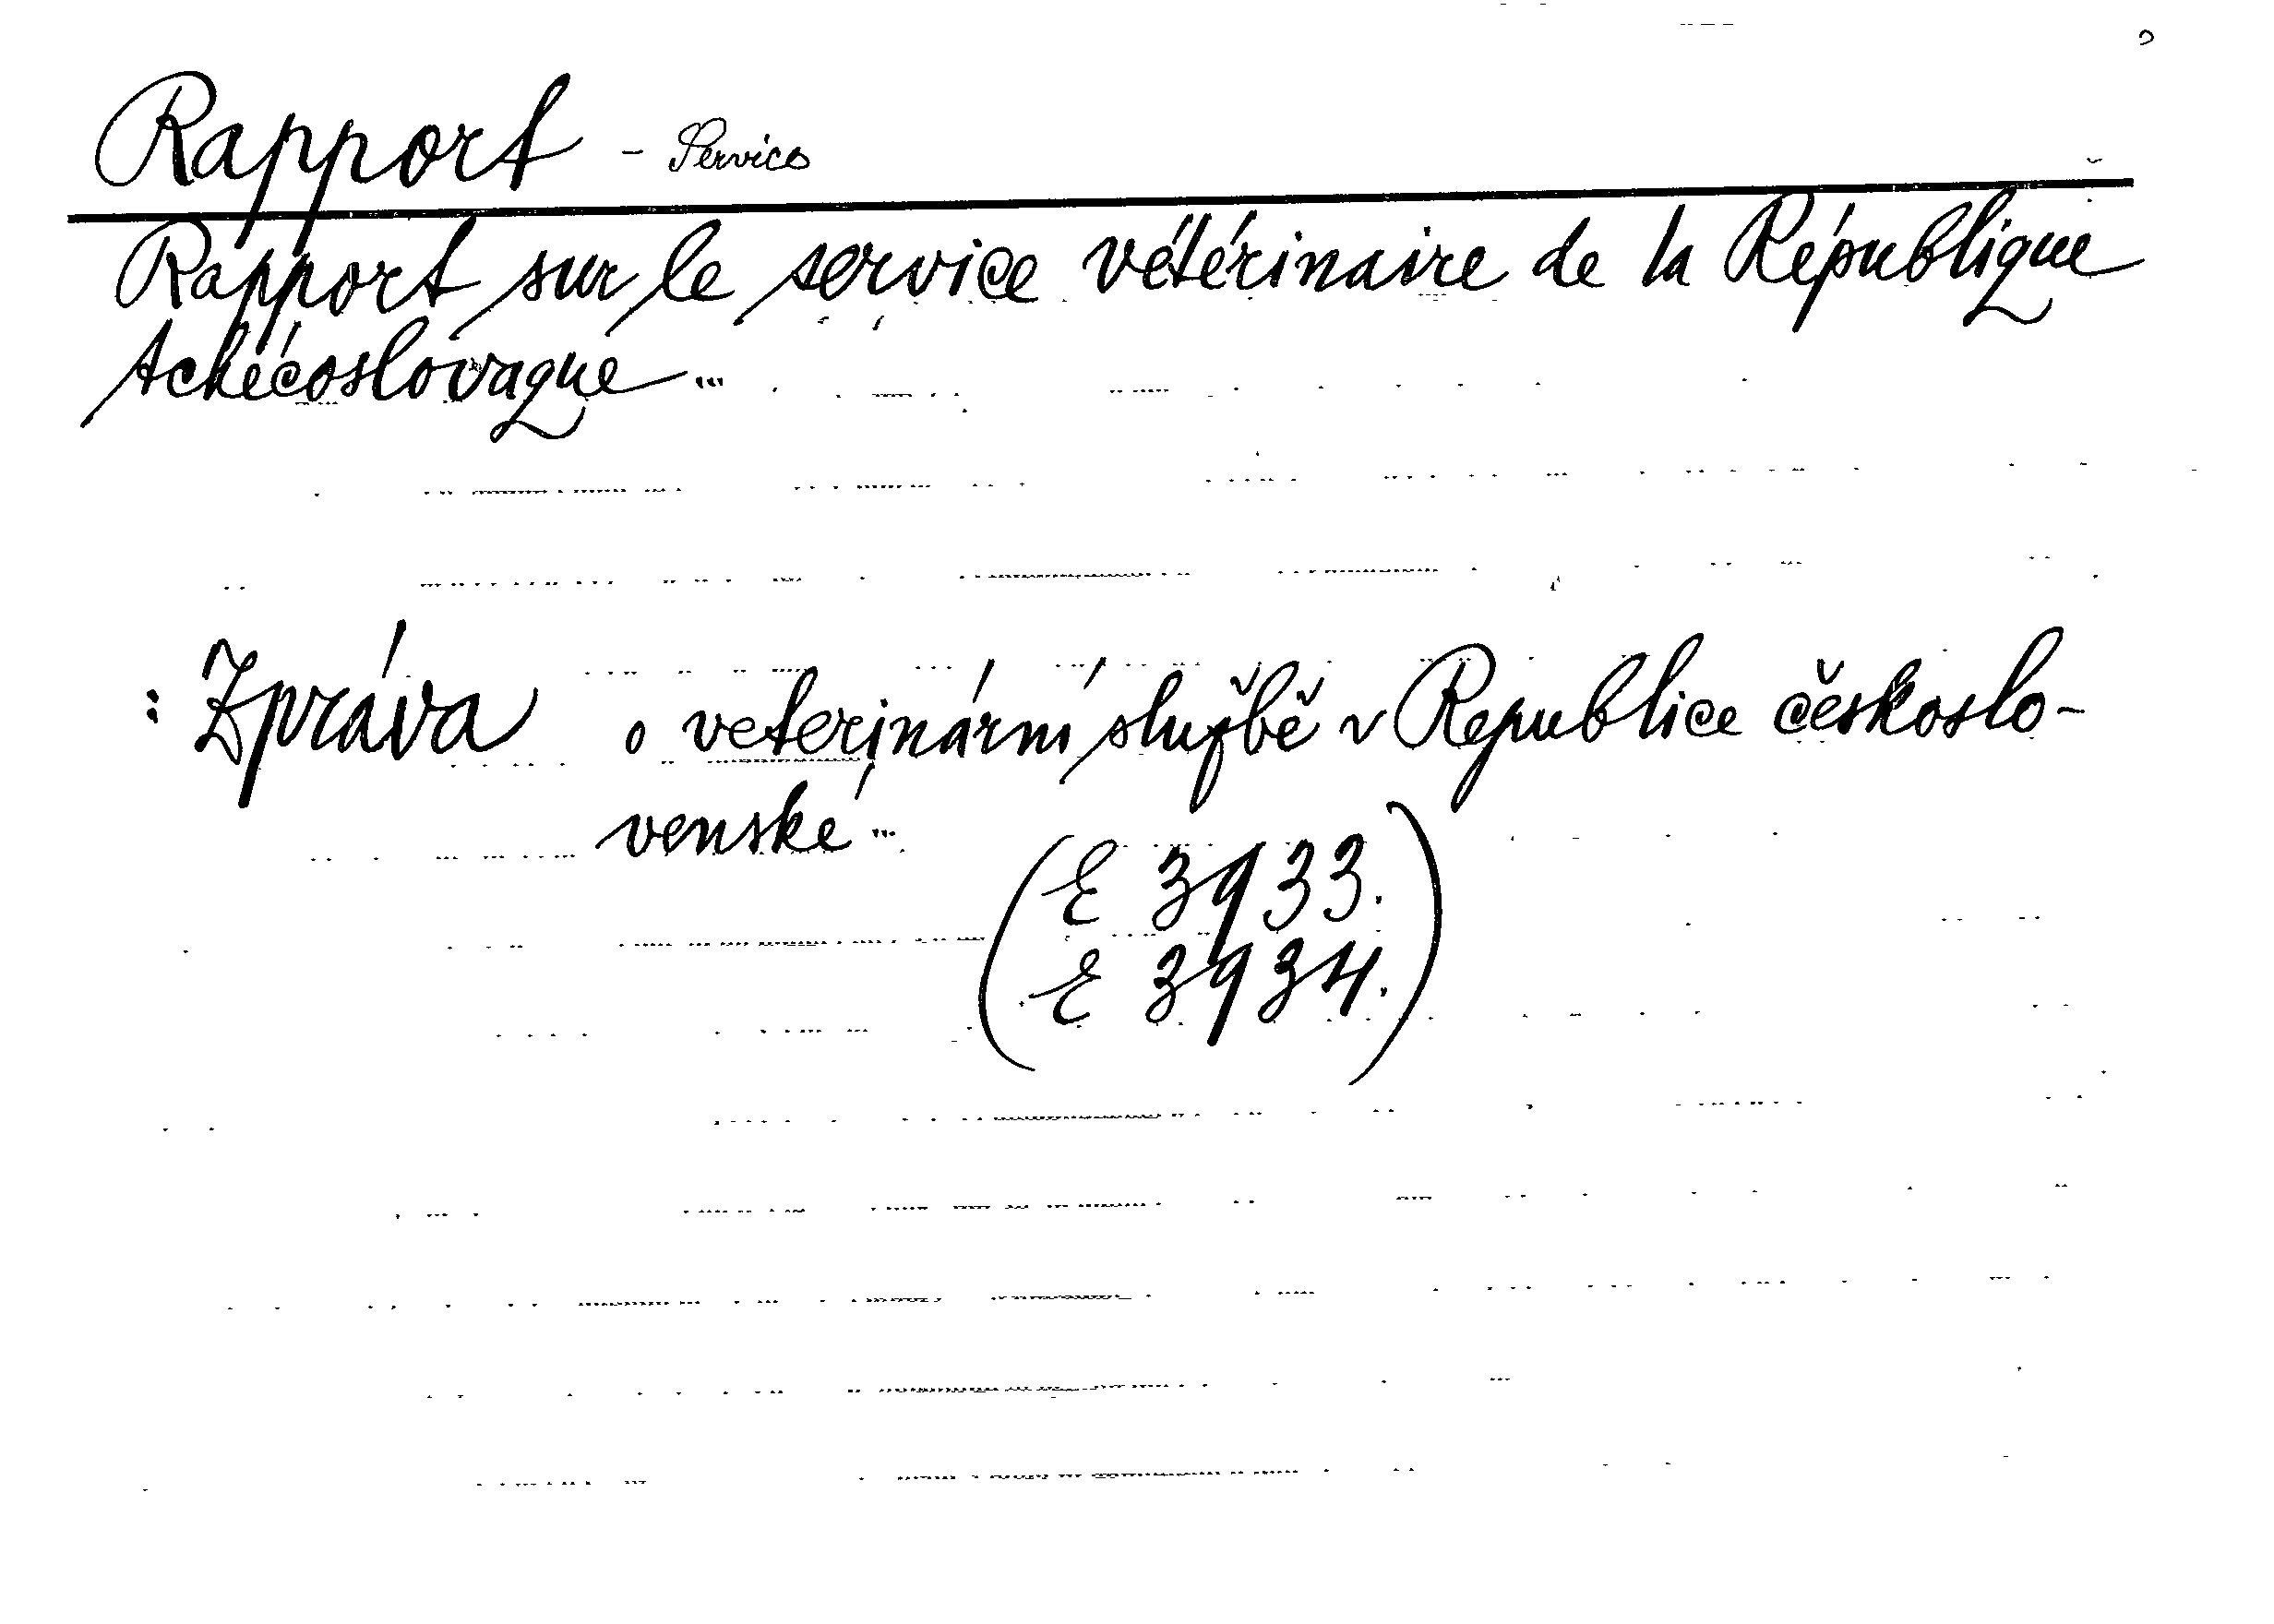 Rapport - Service
Rapport sur le service vétérinaire de la République
tchécoslovaque ...
: Zpráva o veterinární službě v Republice českoslo-
venské ...
(E 3933.
E 3934.)